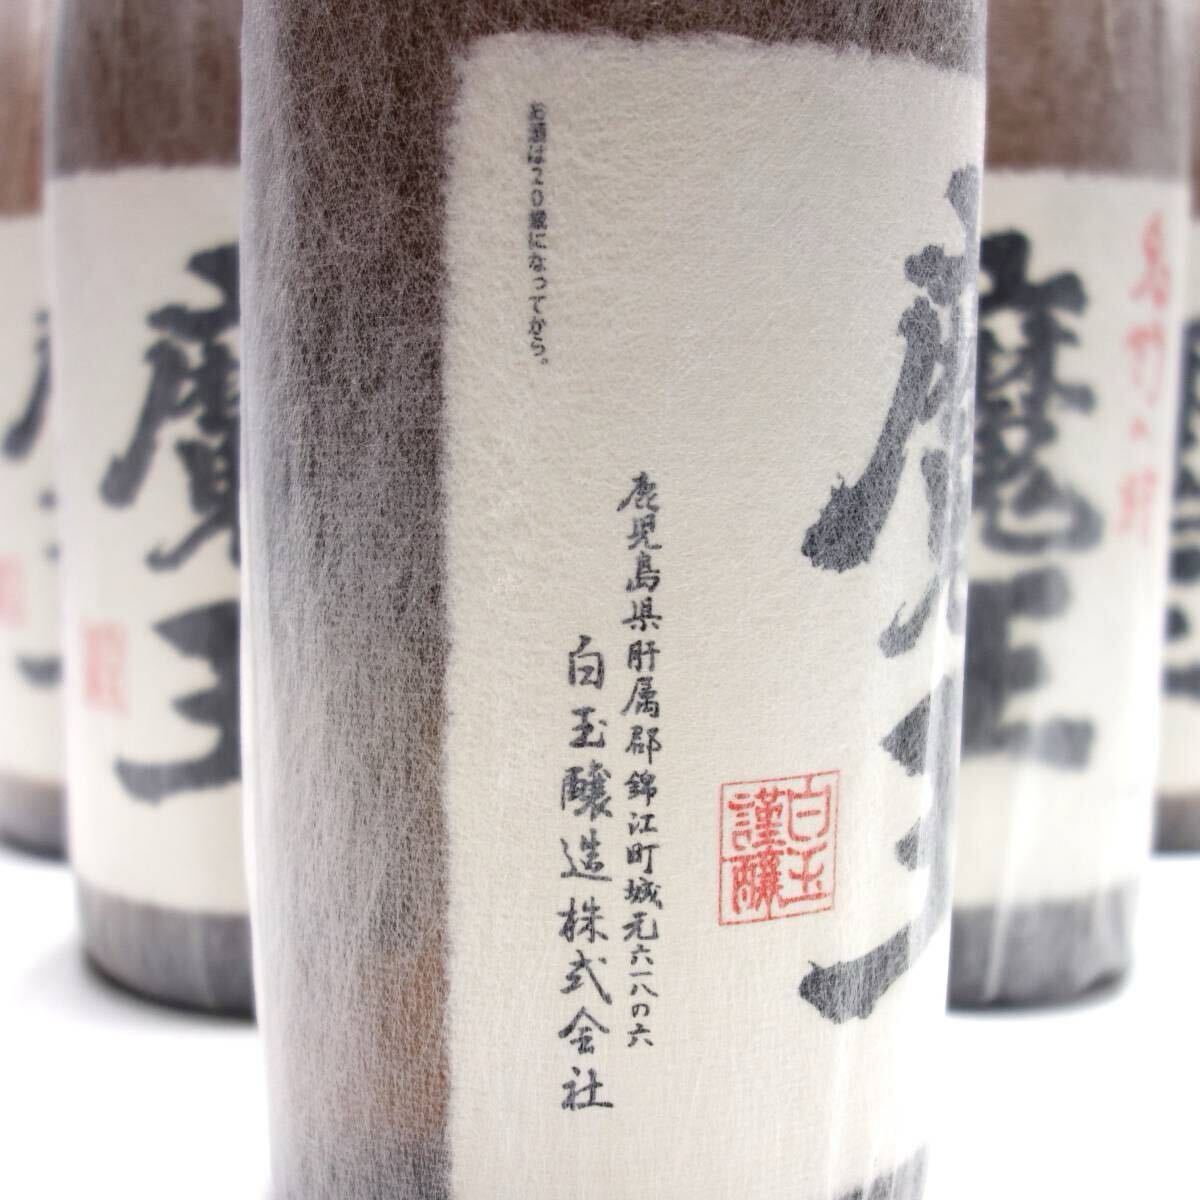 名門の粋
魔王
お酒は20歳になってから。
鹿児島県肝属郡錦江町城元六一八の六
白玉醸造株式会社
白玉
謹醸
魔王
魔王